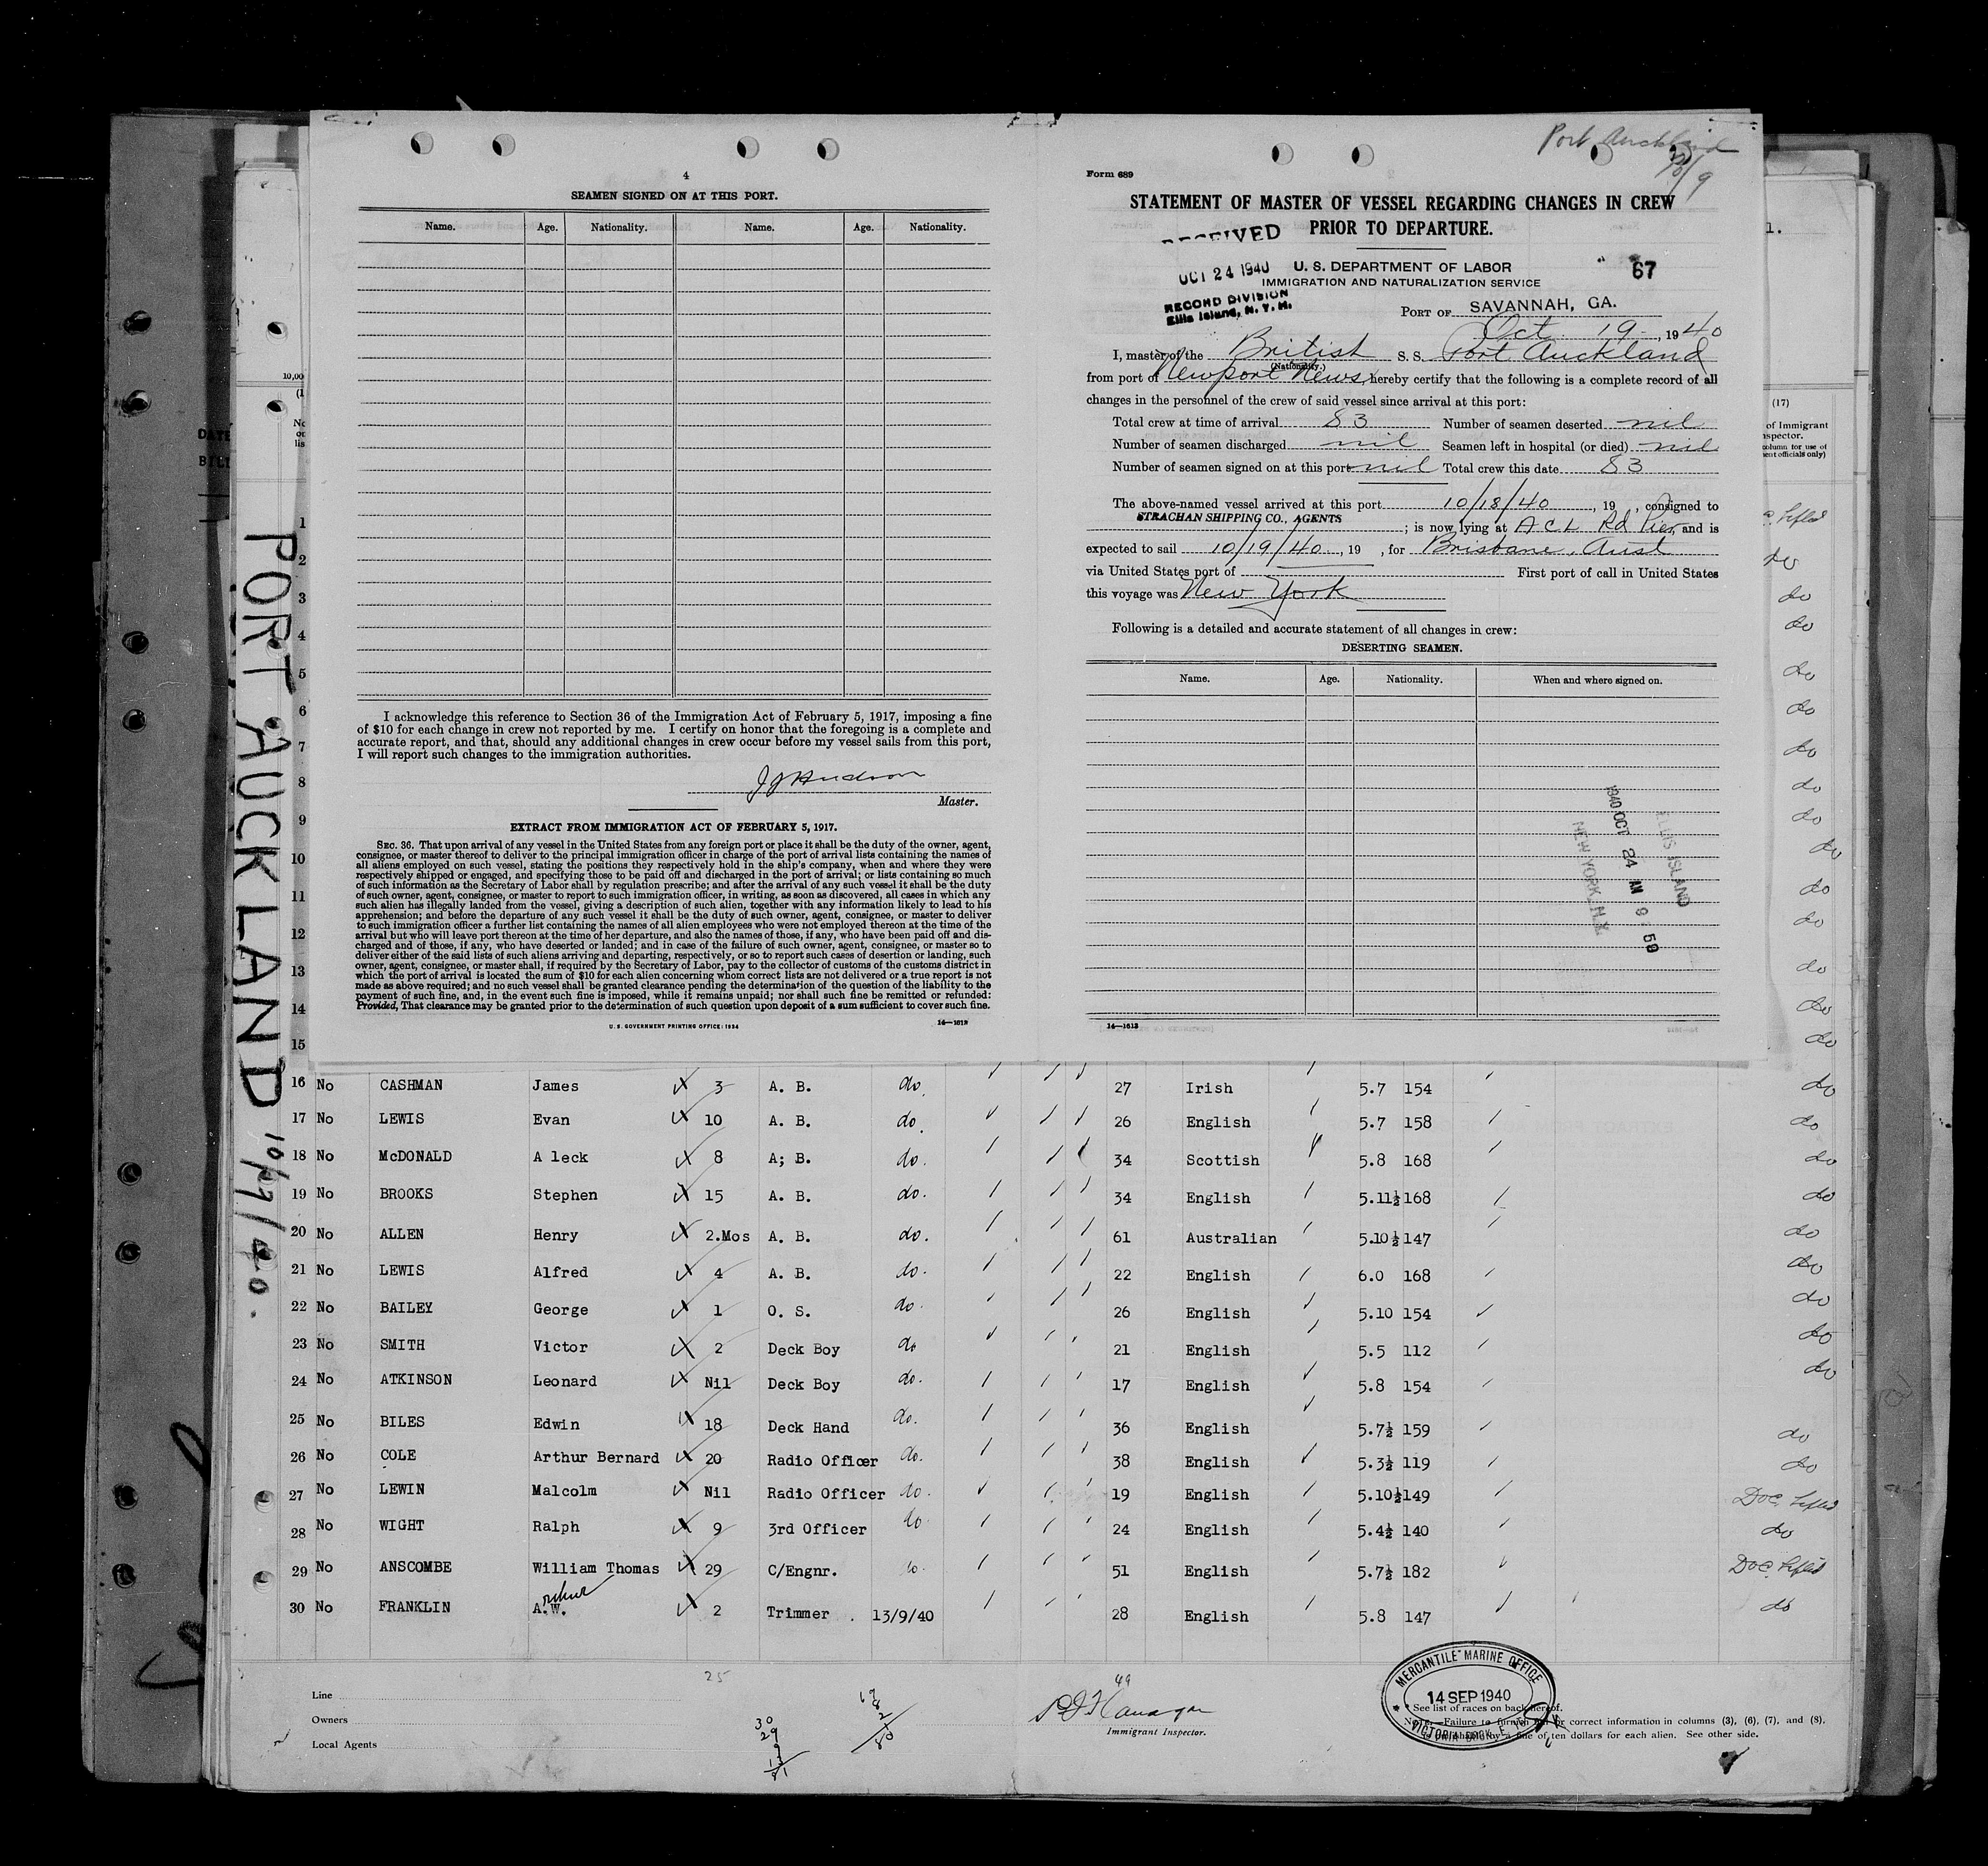 4
SEAMEN SIGNED ON AT THIS PORT.
Name. Age. Nationality. Name. Age. Nationality.
I acknowledge this reference to Section 36 of the Immigration Act of February 5, 1917, imposing a fine
of $10 for each change in crew not reported by me. I certify on honor that the foregoing is a complete and
accurate report, and that, should any additional changes in crew occur before my vessel sails from this port,
I will report such changes to the immigration authorities.
J J Hudson
Master.
EXTRACT FROM IMMIGRATION ACT OF FEBRUARY 5, 1917.
SEC. 36. That upon arrival of any vessel in the United States from any foreign port or place it shall be the duty of the owner, agent,
consignee, or master thereof to deliver to the principal immigration officer in charge of the port of arrival lists containing the names of
all aliens employed on such vessel, stating the positions they respectively hold in the ship's company, when and where they were
respectively shipped or engaged, and specifying those to be paid off and discharged in the port of arrival; or lists containing so much
of such information as the Secretary of Labor shall by regulation prescribe; and after the arrival of any such vessel it shall be the duty
of such owner, agent, consignee, or master to report to such immigration officer, in writing, as soon as discovered, all cases in which any
such alien has illegally landed from the vessel, giving a description of such alien, together with any information likely to lead to his
apprehension; and before the departure of any such vessel it shall be the duty of such owner, agent, consignee, or master to deliver
to such immigration officer a further list containing the names of all alien employees who were not employed thereon at the time of the
arrival but who will leave port thereon at the time of her departure, and also the names of those, if any, who have been paid off and dis-
charged and of those, if any, who have deserted or landed; and in case of the failure of such owner, agent, consignee, or master so to
deliver either of the said lists of such aliens arriving and departing, respectively, or so to report such cases of desertion or landing, such
owner, agent, consignee, or master shall, if required by the Secretary of Labor, pay to the collector of customs of the customs district in
which the port of arrival is located the sum of $10 for each alien concerning whom correct lists are not delivered or a true report is not
made as above required; and no such vessel shall be granted clearance pending the determination of the question of the liability to the
payment of such fine, and, in the event such fine is imposed, while it remains unpaid; nor shall such fine be remitted or refunded:
Provided, That clearance may be granted prior to the determination of such question upon deposit of a sum sufficient to cover such fine.
U. S. GOVERNMENT PRINTING OFFICE: 1934 14—1613
Port Auckland
10/9
Form 689
STATEMENT OF MASTER OF VESSEL REGARDING CHANGES IN CREW
PRIOR TO DEPARTURE.
RECEIVED
OCT 24 1940
RECORD DIVISION
Ellis Island, N. Y. H.
U. S. DEPARTMENT OF LABOR
67
IMMIGRATION AND NATURALIZATION SERVICE
PORT OF SAVANNAH, GA.
Oct 19, 1940
I, master of the British S. S. Port Auckland
(Nationality.)
from port of Newport News, hereby certify that the following is a complete record of all
changes in the personnel of the crew of said vessel since arrival at this port:
Total crew at time of arrival 83 Number of seamen deserted nil
Number of seamen discharged nil Seamen left in hospital (or died) nil
Number of seamen signed on at this port nil Total crew this date 83
The above-named vessel arrived at this port 10/18/40, 19 , consigned to
STRACHAN SHIPPING CO., AGENTS ; is now lying at A C L Rd Pier, and is
expected to sail 10/19/40, 19 , for Brisbane, Aust
via United States port of First port of call in United States
this voyage was New York
Following is a detailed and accurate statement of all changes in crew:
DESERTING SEAMEN.
Name. Age. Nationality. When and where signed on.
1940 OCT 24 AM 9 59
ELLIS ISLAND
NEW YORK, N.Y.
14—1613
PORT AUCKLAND 10/7/40.
(17)
of Immigrant
1
2
3
4
5
6
7
8
9
10
11
12
13
14
15
16 No CASHMAN James 3 A. B. do. 27 Irish 5.7 154 do
17 No LEWIS Evan 10 A. B. do. 26 English 5.7 158 do
18 No McDONALD A leck 8 A; B. do. 34 Scottish 5.8 168 do
19 No BROOKS Stephen 15 A. B. do. 34 English 5.11½ 168 do
20 No ALLEN Henry 2.Mos A. B. do. 61 Australian 5.10½ 147 do
21 No LEWIS Alfred 4 A. B. do. 22 English 6.0 168 do
22 No BAILEY George 1 O. S. do. 26 English 5.10 154 do
23 No SMITH Victor 2 Deck Boy do 21 English 5.5 112 do
24 No ATKINSON Leonard Nil Deck Boy do. 17 English 5.8 154 do
25 No BILES Edwin 18 Deck Hand do. 36 English 5.7½ 159 do
26 No COLE Arthur Bernard 20 Radio Officer do. 38 English 5.3½ 119 do
27 No LEWIN Malcolm Nil Radio Officer do. 19 English 5.10½ 149 Doc. Lifted
28 No WIGHT Ralph 9 3rd Officer do. 24 English 5.4½ 140 do
29 No ANSCOMBE William Thomas 29 C/Engnr. do. 51 English 5.7½ 182 Doc. Lifted
30 No FRANKLIN A.W. 2 Trimmer . 13/9/40 28 English 5.8 147 do
25
49
Line
Owners
Local Agents
30
29
Immigrant Inspector.
MERCANTILE MARINE OFFICE
14 SEP 1940
VICTORIA DOCK
See list of races on back hereof.
NOTE.—Failure to furnish full or correct information in columns (3), (6), (7), and (8),
is punishable by a fine of ten dollars for each alien. See other side.